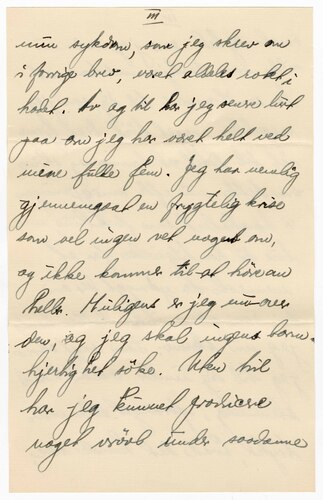 III
min sykdom, som jeg skrev om
i forrige brev, været aldeles rokt i
hodet. Av og til har jeg senere lurt
paa om jeg har været helt ved
mine fulle fem. Jeg har nemlig
gjennemgaat en frygtelig krise
som vel ingen vet noget om,
og ikke kommer til at höre om
heller. Muligens er jeg nu over
den, og jeg skal ingens barm-
hjertighet söke. Uten tvil
har jeg kunnet producere
noget under saadanne